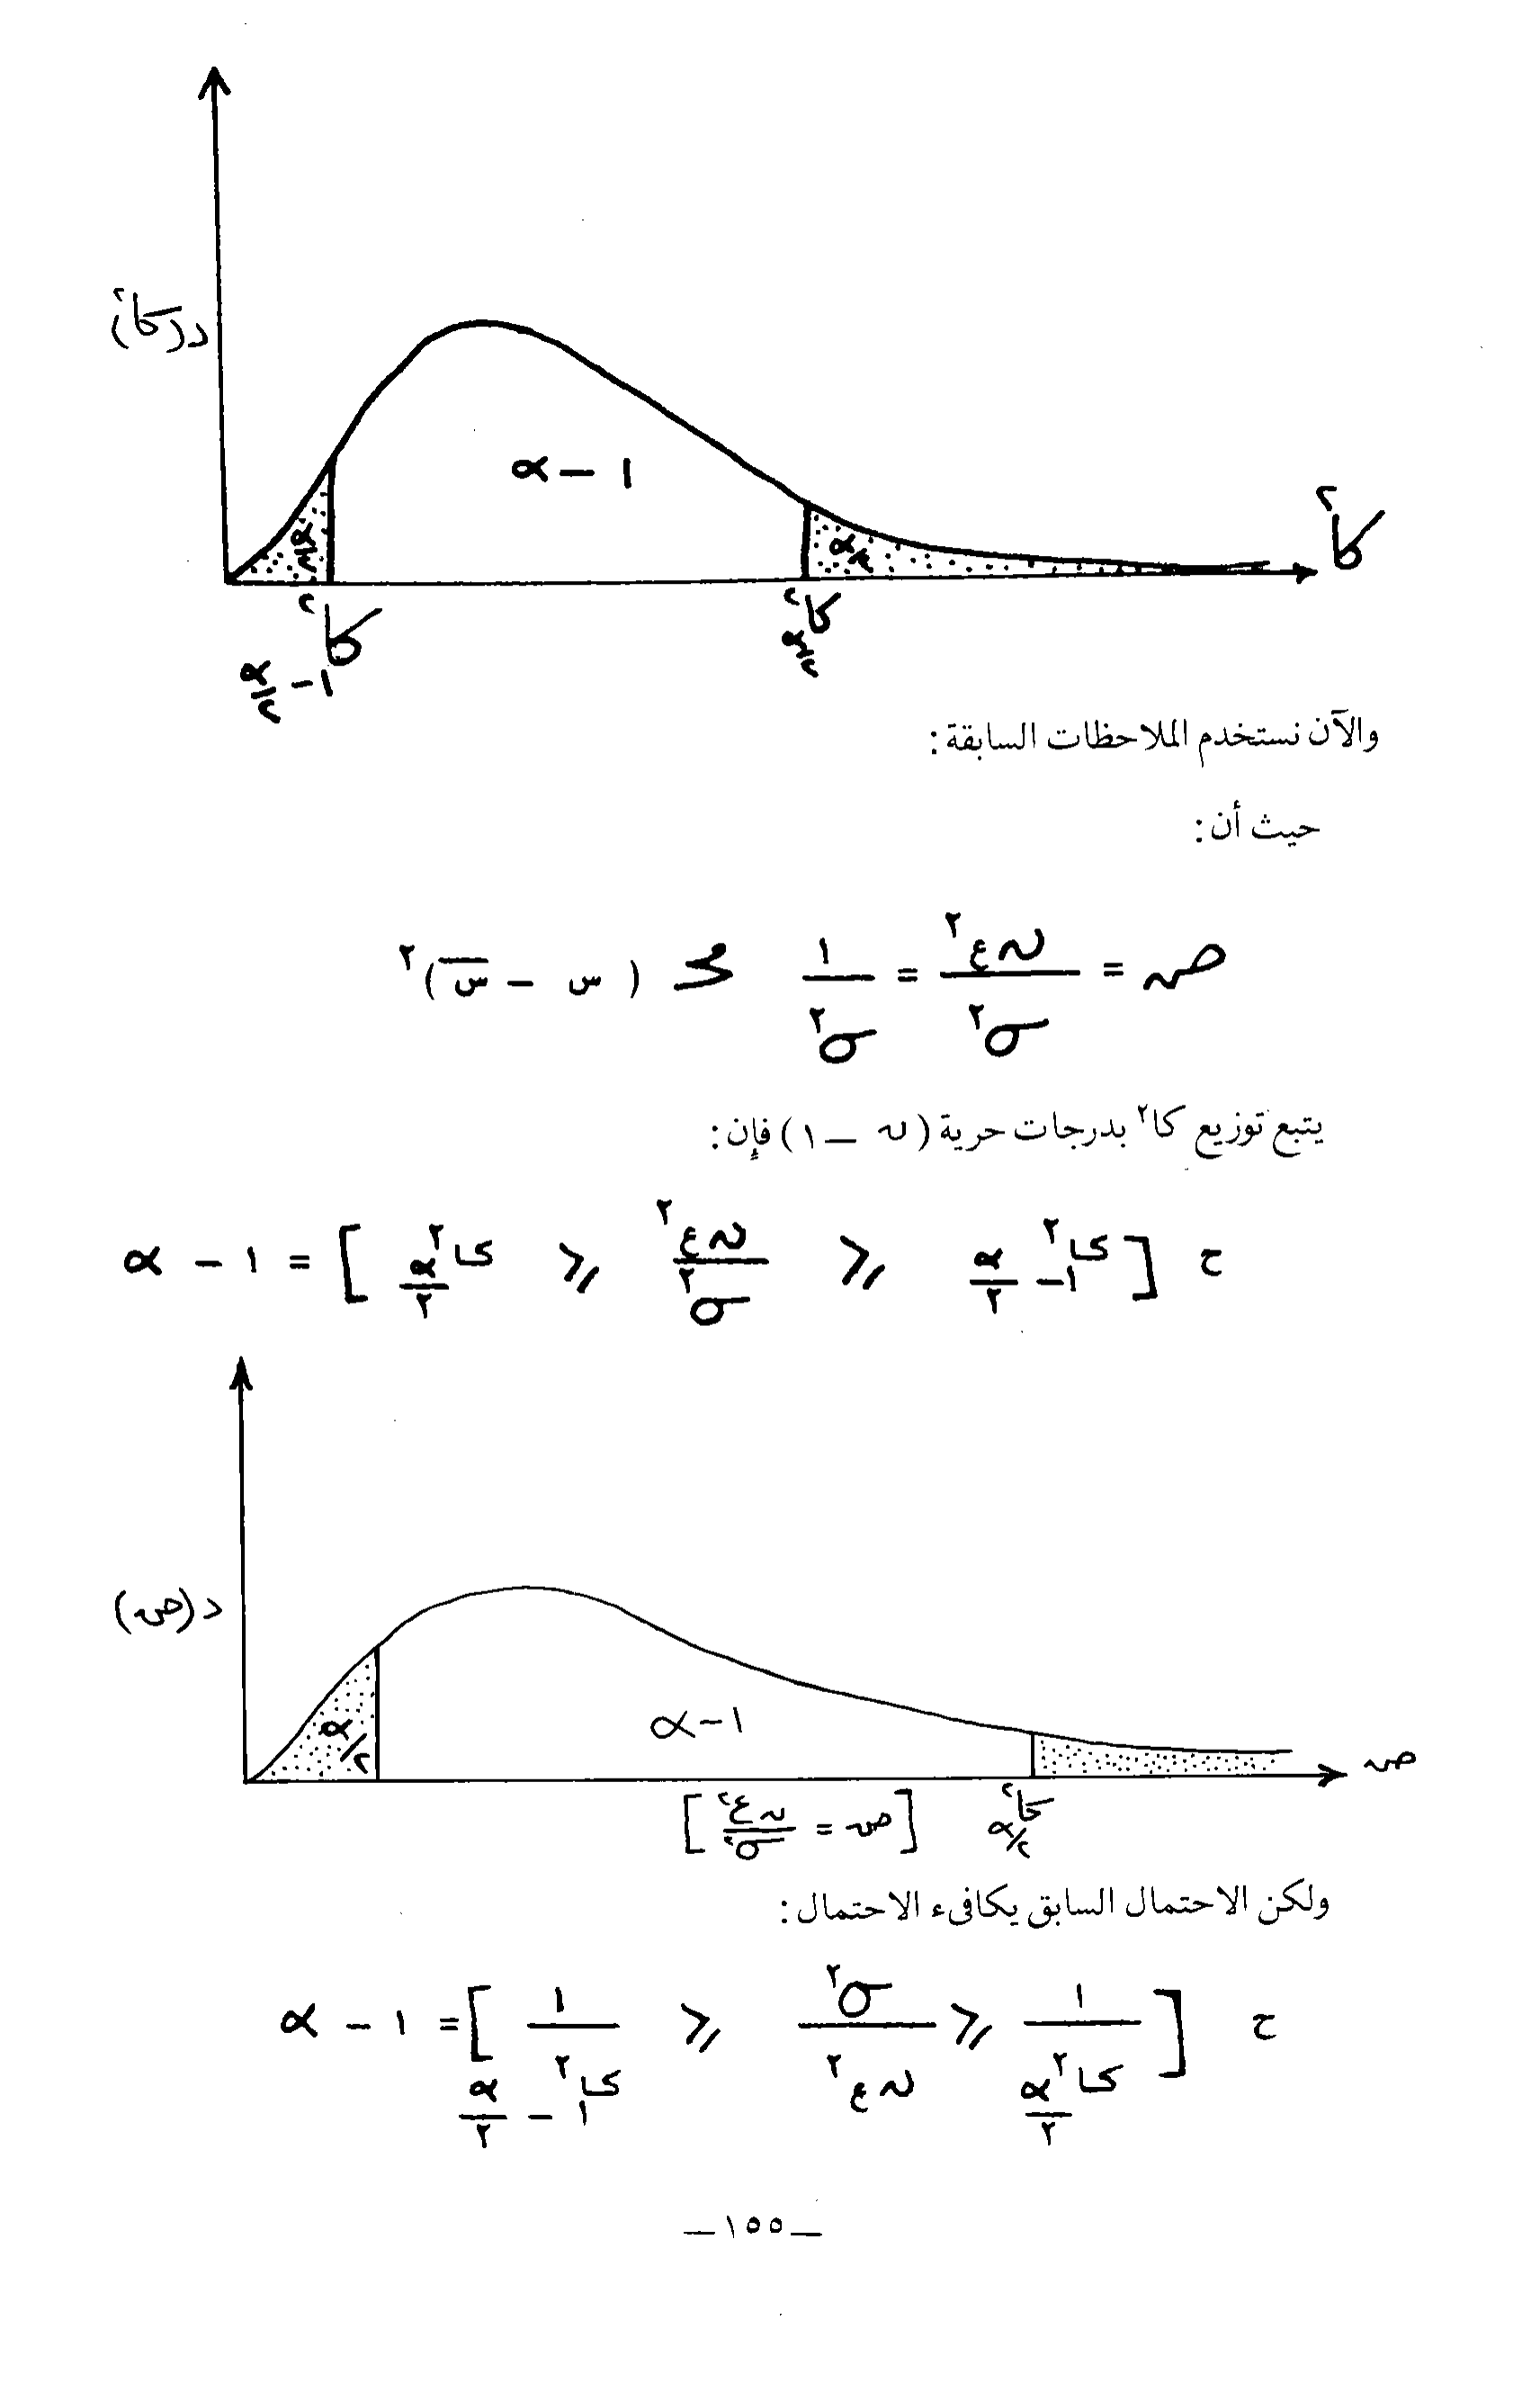 د(كا٢)
١ - α
α/٢
α/٢
كا٢
كا٢ ١ - α/٢
كا٢ α/٢
والآن نستخدم الملاحظات السابقة:
حيث أن:
ص = ن ع٢ / σ٢ = ١ / σ٢ مح (س - س̄)٢
يتبع توزيع كا٢ بدرجات حرية (ن — ١) فإن:
ح [ كا٢ ١ - α/٢ ⩽ ن ع٢ / σ٢ ⩽ كا٢ α/٢ ] = ١ - α
د(ص)
α/٢
١ - α
ص
[ ص = ن ع٢ / σ٢ ]
كا٢ α/٢
ولكن الاحتمال السابق يكافىء الاحتمال:
ح [ ١ / كا٢ α/٢ ⩽ σ٢ / ن ع٢ ⩽ ١ / كا٢ ١ - α/٢ ] = ١ - α
—١٥٥—